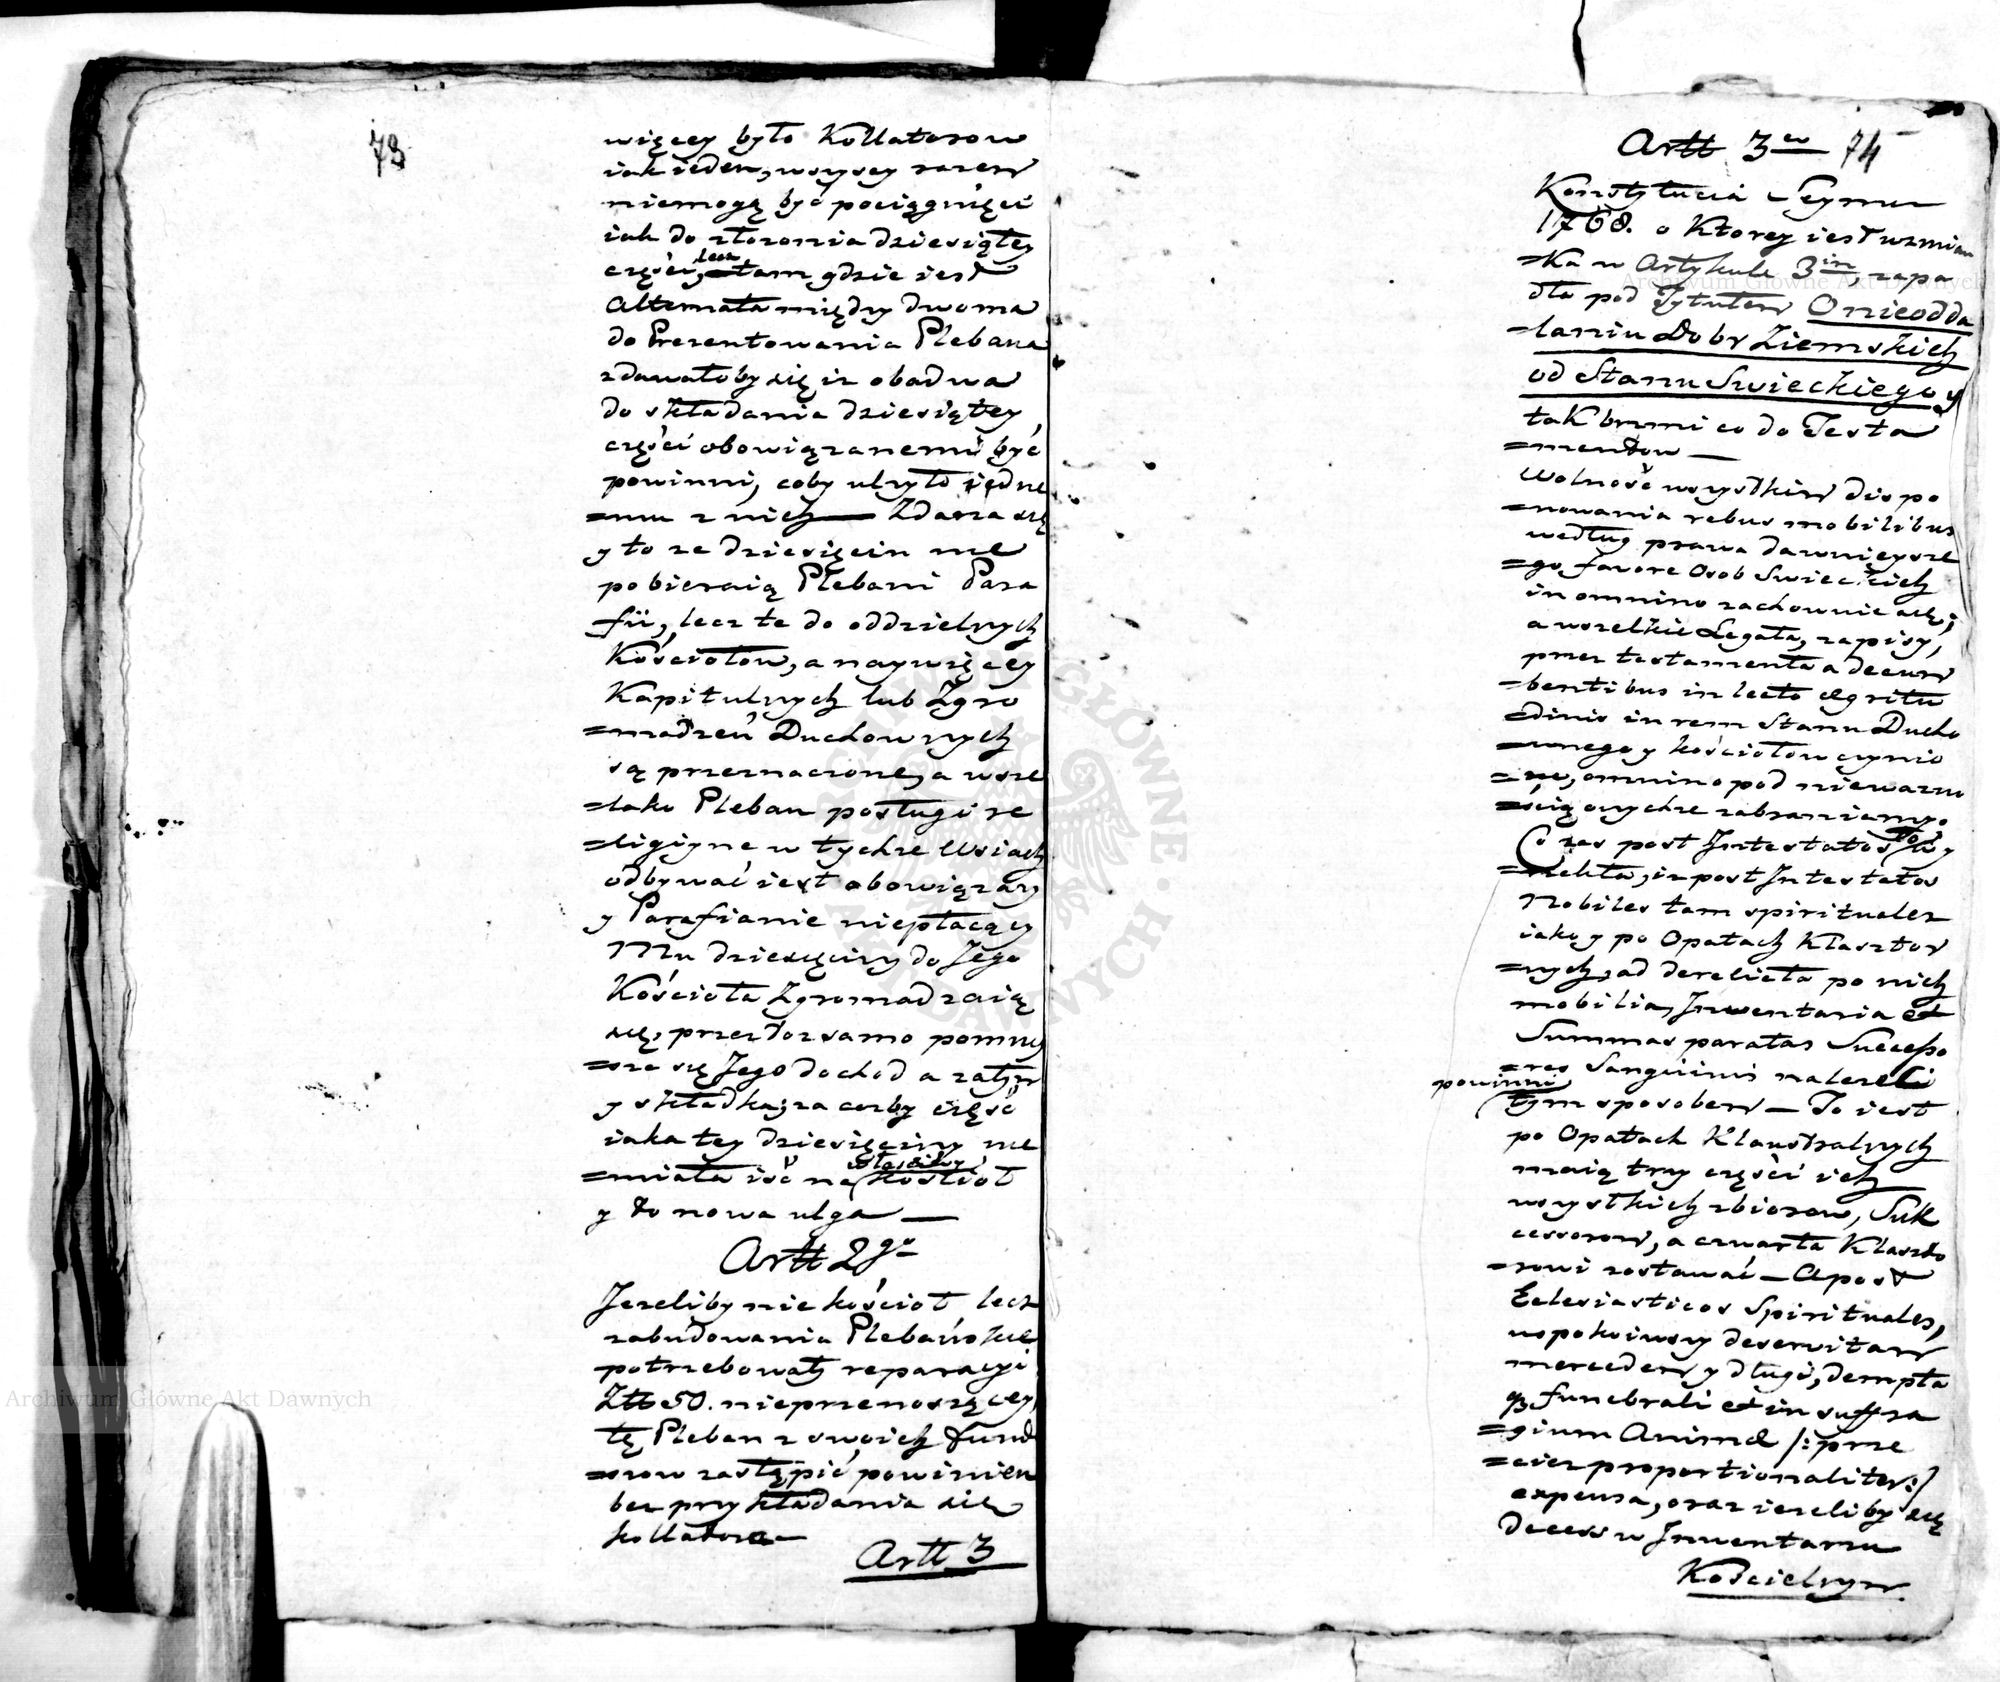 73
więcey było Kollatorow
iak ieden, wszyscy razem
niemogą być pociągnięci
iak do złozonia dziesiątey
części, lecz tam gdzie iest
Alternata między dwoma
do Prezentowania Plebana
zdawałoby się iz obadwa
do składania dziesiątey
części obowiązanemi być
powinni, coby ulżyło iedne
=mu z nich — Zdarza się
y to ze dziesięcin nie
pobieraią Plebani Para
fii, lecz te do oddzielnych
Kościołow, a naywięcey
Kapitulnych lub Zgro
=madzeń Duchownych
są przeznaczone, a wsze
=lako Pleban posługi re
=ligiyne w tychże Wsiach
odbywać iest obowiązany
y Parafianie niepłacący
Mu dziesięciny do Jego
Kościoła zgromadzaią
się, przez toz samo pomniey
=sza się Jego dochod a zatym
y składka; za cozby część
iaka tey dziesięciny nie
=miała iść na własciwy Kościoł
y to nowa ulga —
Artt 2go
Jezeliby nie kościoł lecz
zabudowania Plebańskie
potrzebowały reparacyi
Złł 50. nieprzenoszącey,
tę Pleban z swoich Fund
=uszow zastąpić powinien
bez przykładania się
kollatora —
Artt 3
Artt 3cu 74
Konstytucia Seymu
1768. o Ktorey iest wzmian
=ka w Artykule 3im, zapa
dła pod Tytułem O nieodda
=laniu Dobr Ziemskich
od Stanu Swieckiego y
tak brzmi co do Testa
=mentow —
Wolność wszystkim dispo
=nowania rebus mobilibus
według prawa dawnieysze
=go favore Osob Swieckich
in omnino zachowuie się;
a wszelkie Legata, zapisy,
przez testamenta a decum
=bentibus in lecto ægritu
=dinis in rem Stanu Ducho
=wnego y kościołow czynio
=ne, omnino pod niewazno
=ścią onychze zabraniamy.
Co zas post Intestatos
=relicta, iz post Intestatos
Nobiles tam spirituales
iako y po Opatach Klasztor
=nych, ad derelicta po nich
mobilia, Inwentaria et
Summas paratas Successo
=res Sanguinis nalezeć
powinni tym sposobem — To iest
po Opatach Klaustralnych
maią trzy części ich
wszystkich zbiorow, Suk
cessorom, a czwarta Klaszto
=rowi zostawać — A post
Eclesiasticos Spirituales,
uspokoiwszy deservitam
mercedem y długi, dempta
q3 funebrali et in suffra
=gium Animæ /: prze
=ciez proportionaliter :/
expensa, oraz iezeliby się
decess w Inwentarzu
Kościelnym